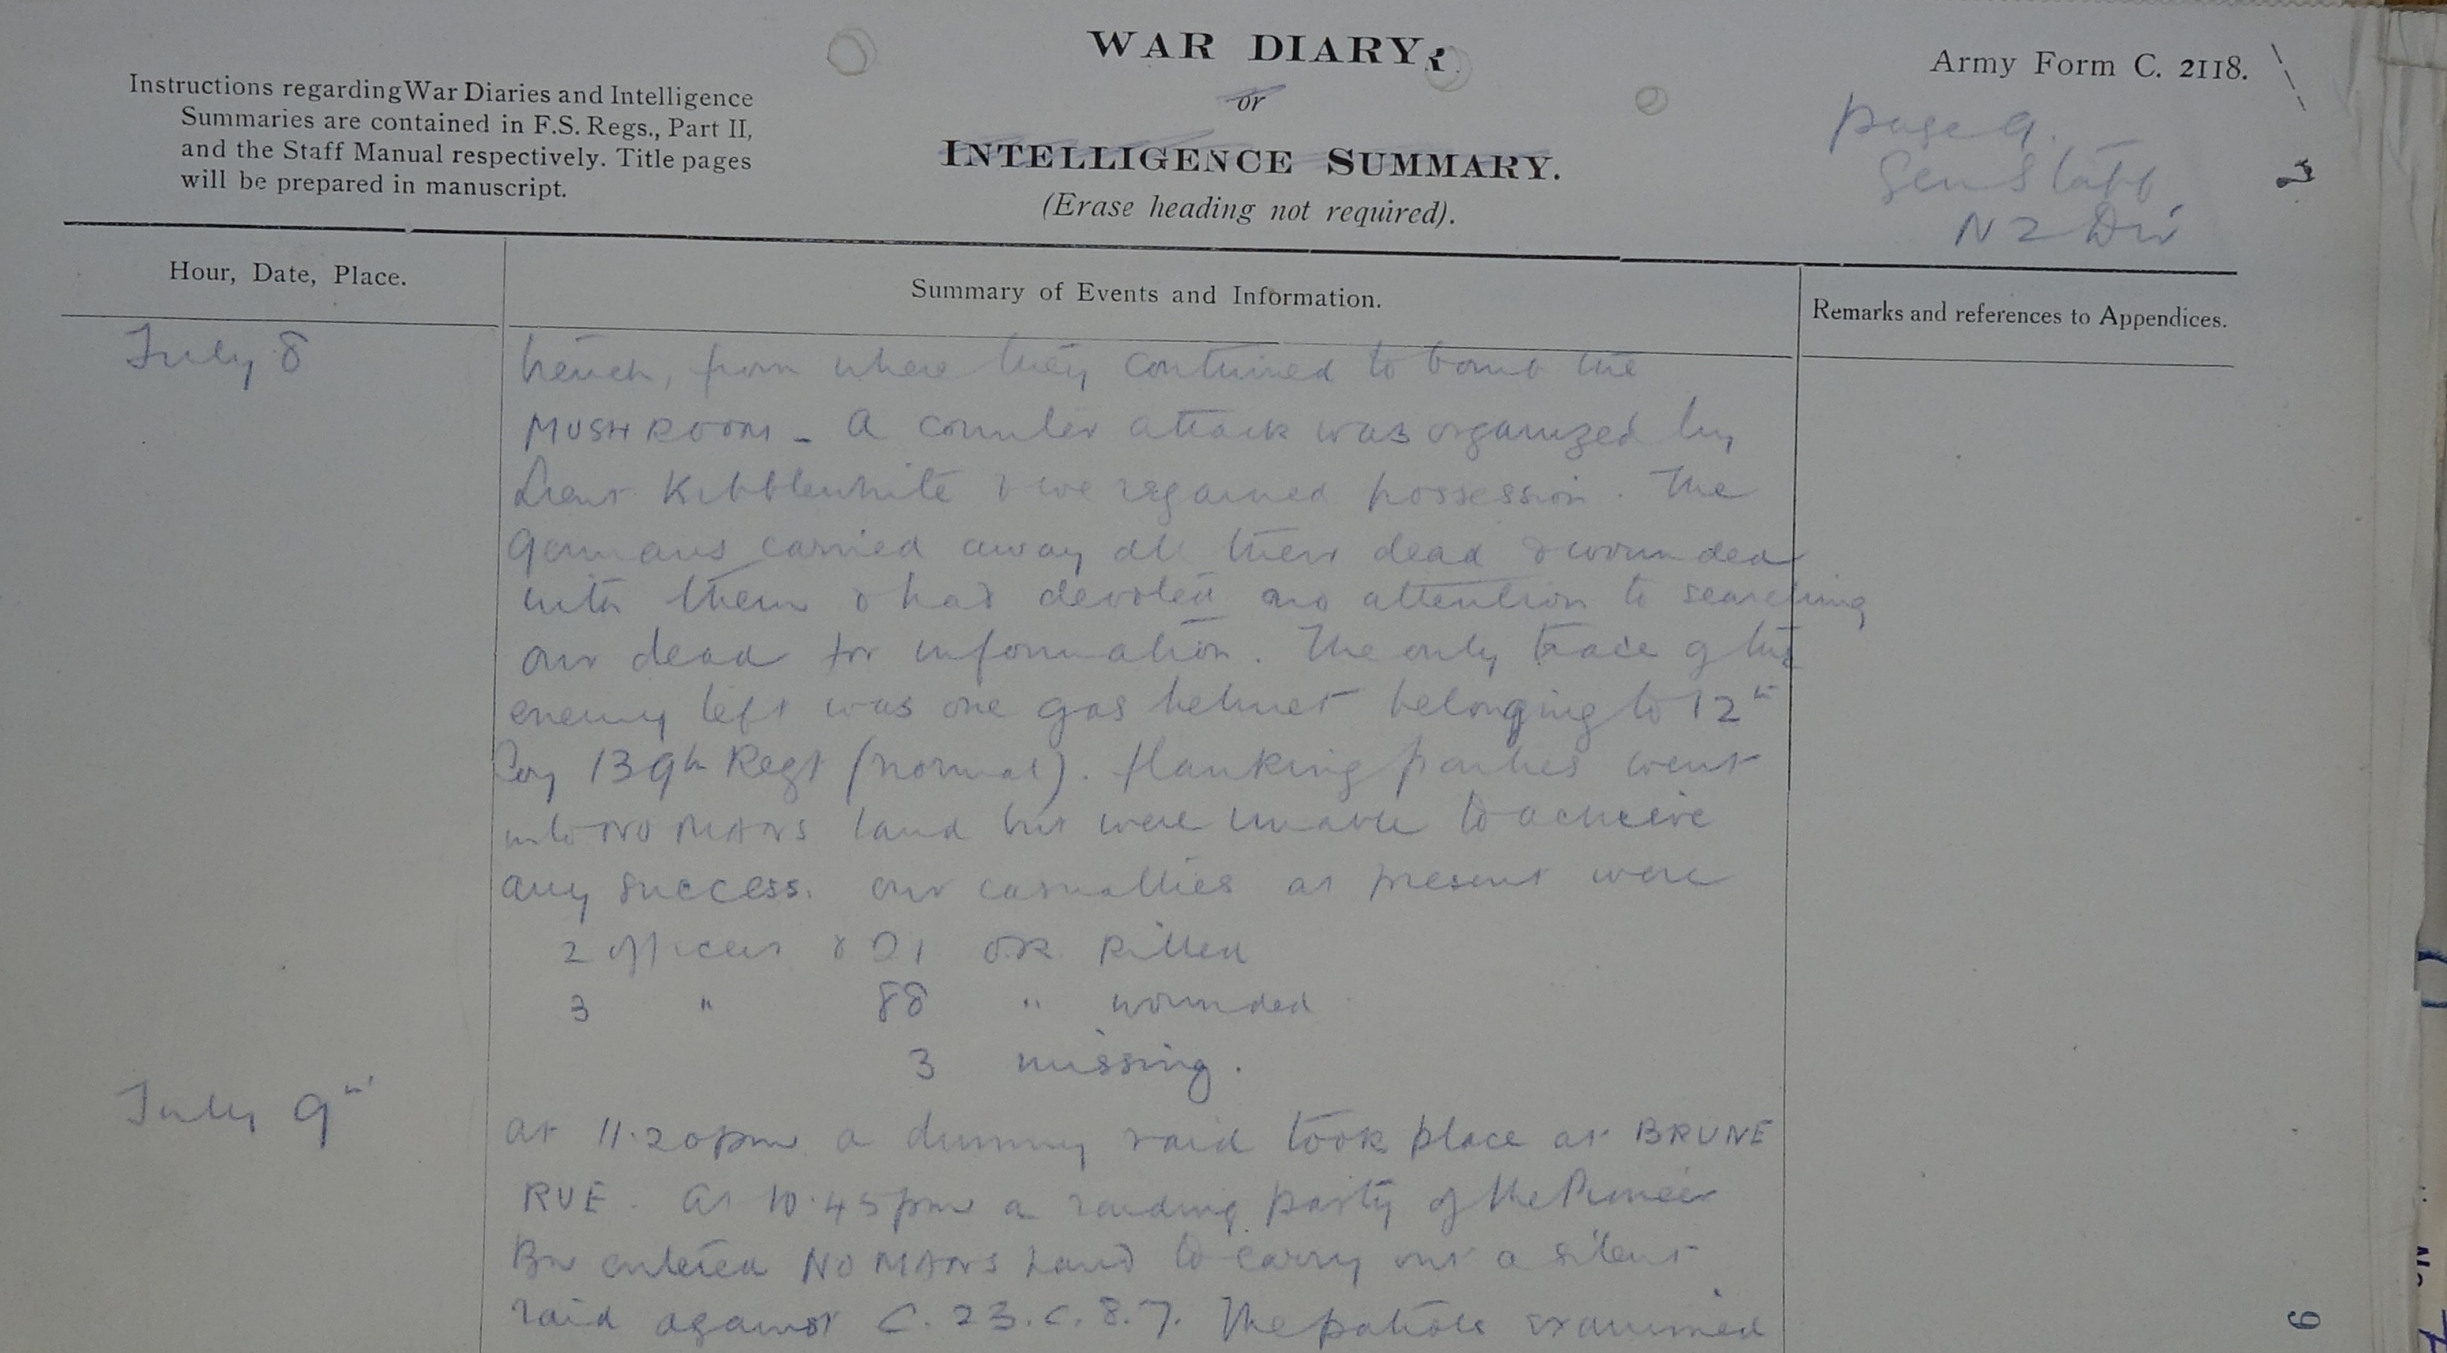 WAR DIARY
or
INTELLIGENCE SUMMARY.
(Erase heading not required).
Army Form C. 2118.
Instructions regarding War Diaries and Intelligence
Summaries are contained in F.S. Regs., Part II,
and the Staff Manual respectively. Title pages
will be prepared in manuscript.
page 9.
Gen Staff
NZ Div
Hour, Date, Place.
Summary of Events and Information.
Remarks and references to Appendices.
July 8
trench, from where they continued to bomb the
MUSHROOM - A counter attack was organized by
Lieut Kibblewhite & we regained possession. The
Germans carried away all their dead & wounded
with them & had devoted no attention to searching
our dead for information. The only trace of the
enemy left was one gas helmet belonging to 12th
Coy 139th Regt (normal). Flanking parties went
into NO MANS land but were unable to achieve
any success. Our casualties at present were
2 officers & 21 O.R. killed
3 " 88 " wounded
3 missing.
July 9th
At 11.20pm a dummy raid took place at BRUNE
RUE. At 10.45pm a raiding party of the Pioneer
Bn entered NO MANS Land to carry out a silent
raid against C.23.c.8.7. The patrols examined
6